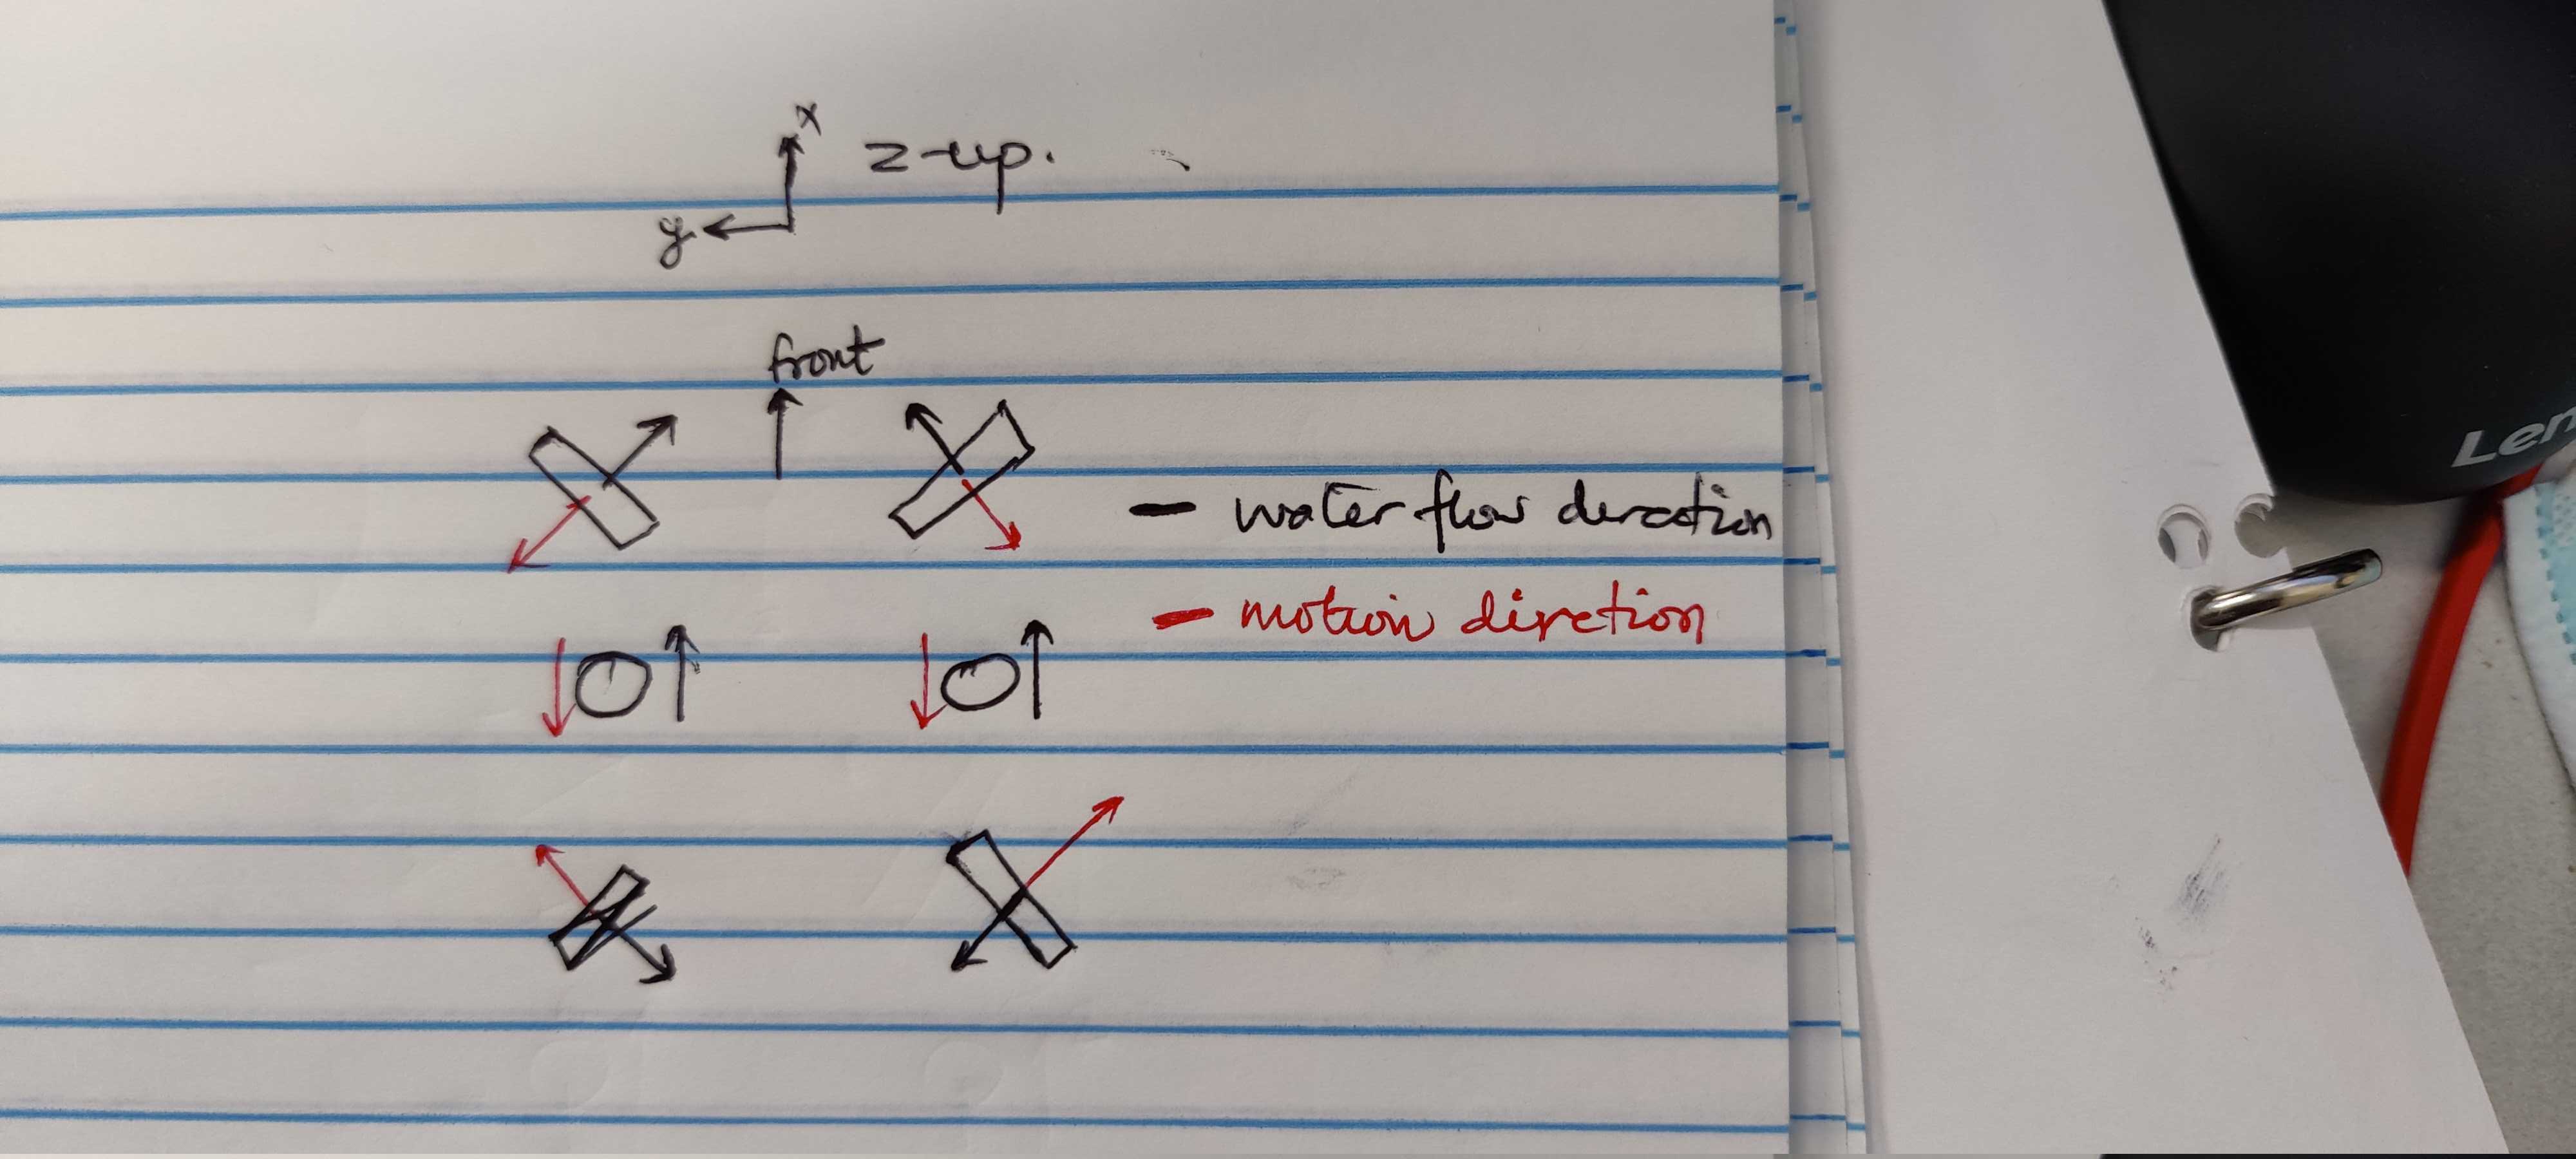 x
z-up.
y
front
- water flow direction
- motion direction
Len